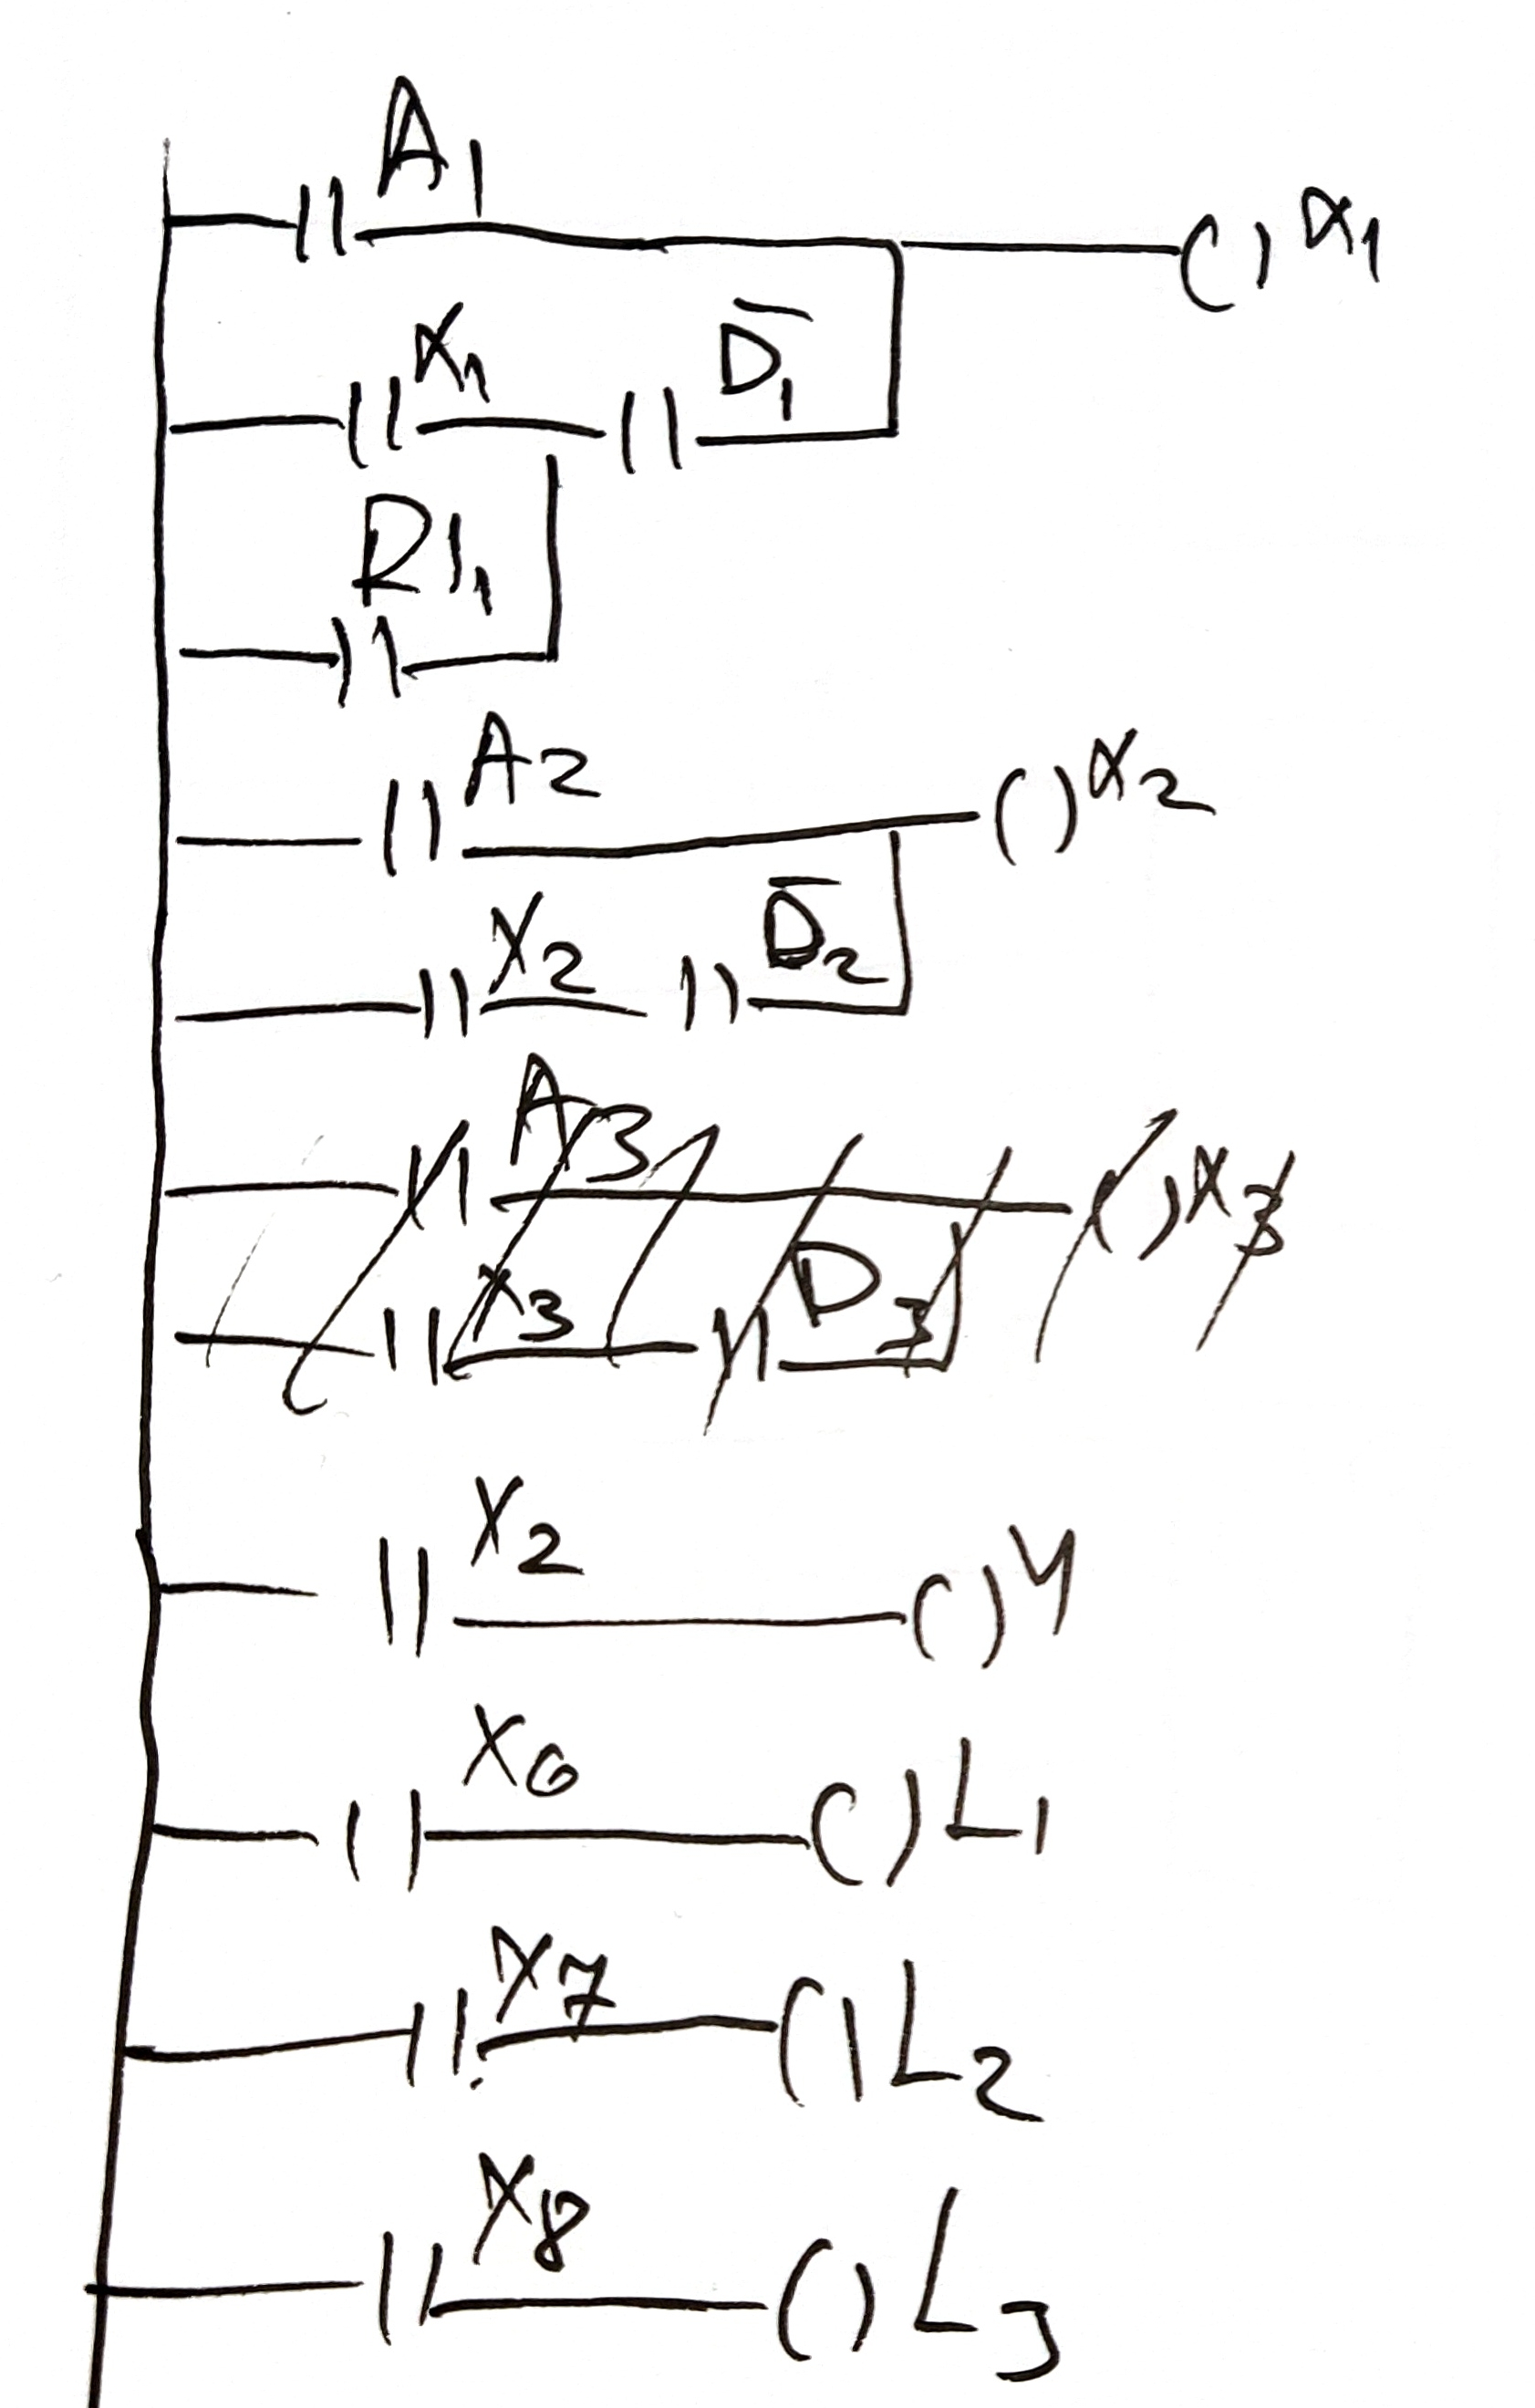 A1
X1
X1 D̄1
R11
A2 X2
X2 D̄2
A3 X3
X3 D3
X2 Y
X6 L1
X7 L2
X8 L3